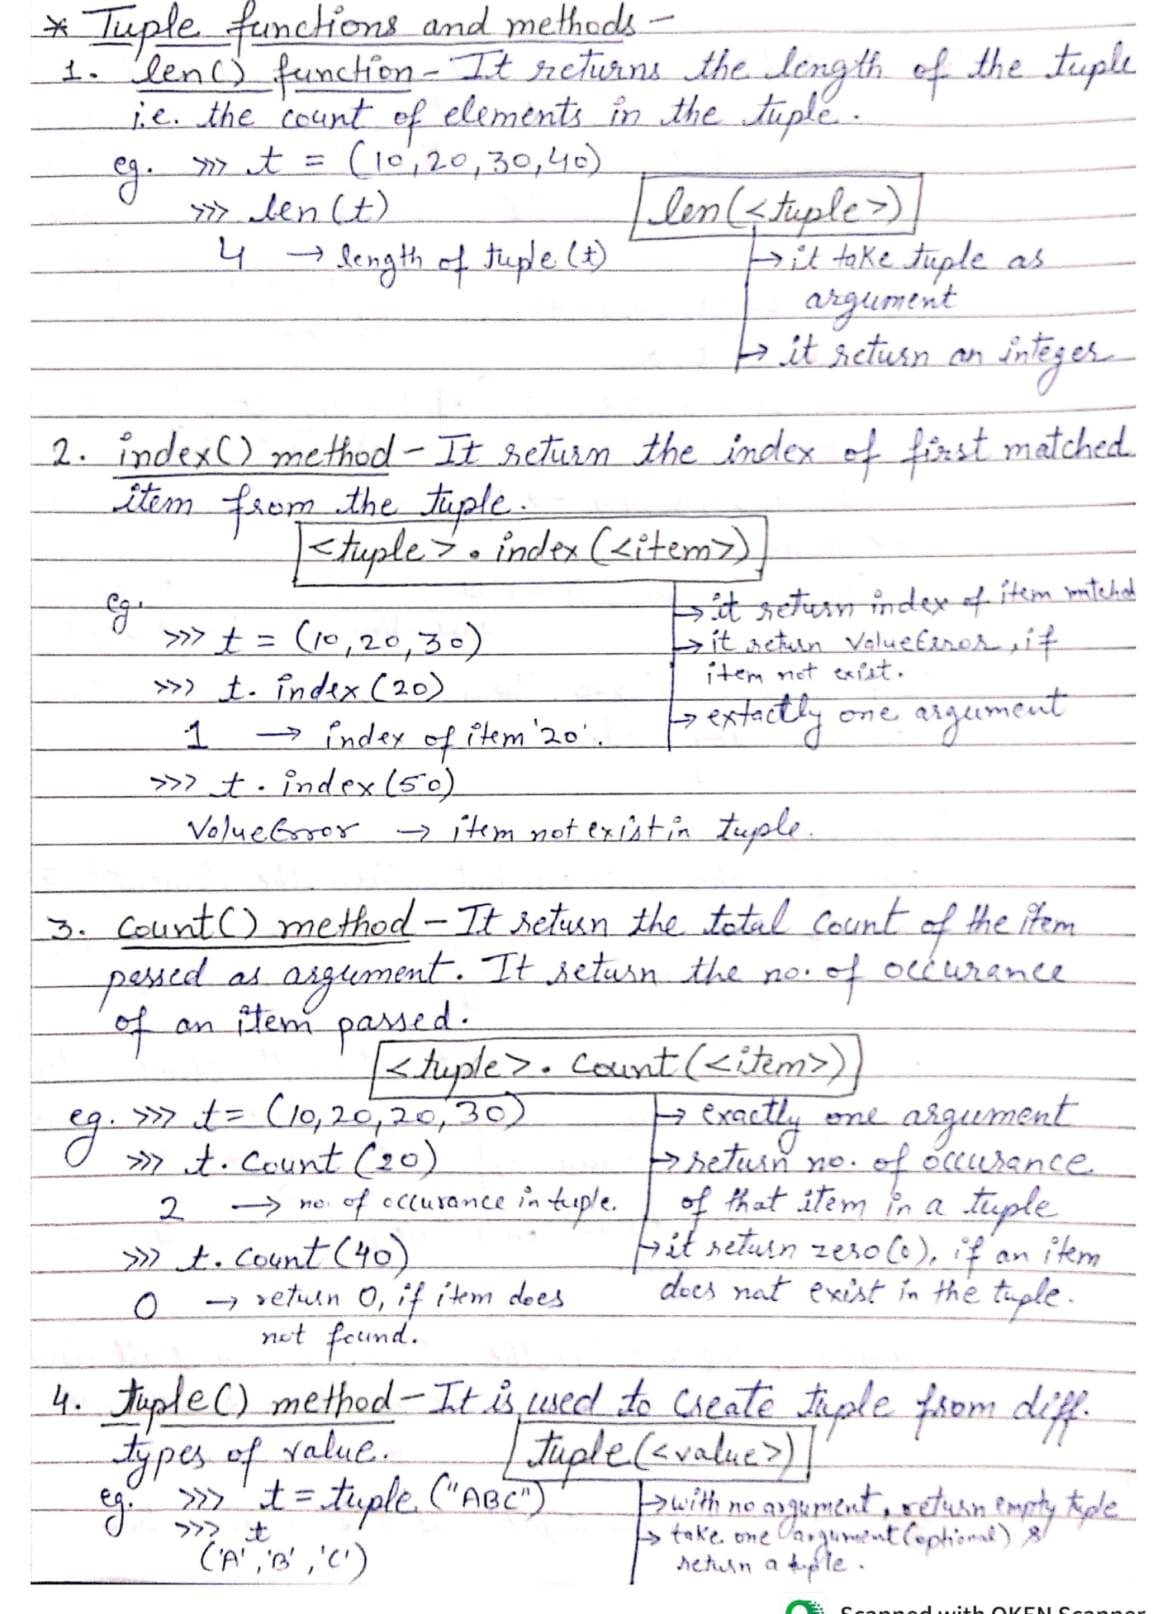 * Tuple functions and methods -
1. len() function - It returns the length of the tuple
i.e. the count of elements in the tuple.
eg. >>> t = (10,20,30,40)
>>> len(t)
len(<tuple>)
4 → length of tuple (t)
→ it take tuple as
argument
→ it return an integer
2. index() method - It return the index of first matched
item from the tuple.
<tuple>.index(<item>)
eg.
→ it return index of item matched
>>> t = (10,20,30)
→ it return ValueError, if
item not exist.
>>> t.index(20)
→ extactly one argument
1 → index of item '20'.
>>> t.index(50)
ValueError → item not exist in tuple.
3. Count() method - It return the total count of the item
passed as argument. It return the no. of occurance
of an item passed.
<tuple>.count(<item>)
eg. >>> t = (10,20,20,30)
→ exactly one argument
>>> t.count(20)
→ return no. of occurance
2 → no. of occurance in tuple.
of that item in a tuple
>>> t.count(40)
→ it return zero(0), if an item
0 → return 0, if item does
does not exist in the tuple.
not found.
4. tuple() method - It is used to create tuple from diff.
types of value.
tuple(<value>)
eg. >>> t = tuple("ABC")
→ with no argument, return empty tuple
>>> t
→ take one argument (optional) &
('A','B','C')
return a tuple.
Scanned with OKEN Scanner